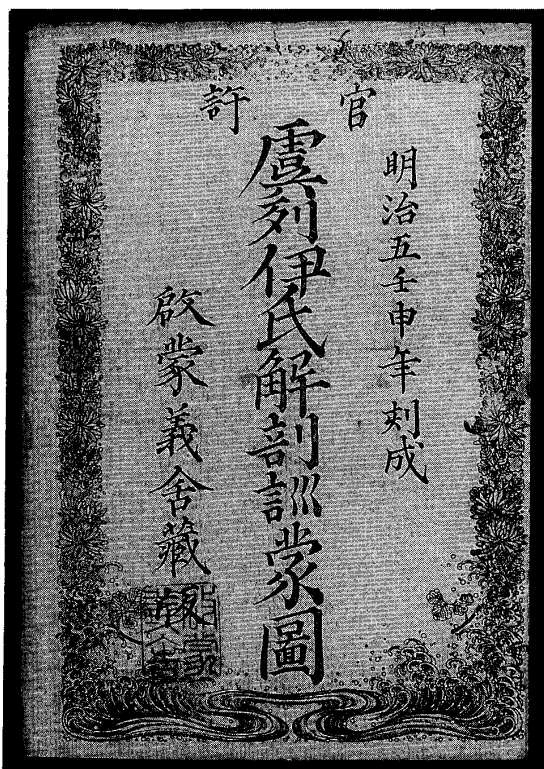 官許
明治五壬申年刻成
虞列伊氏解剖訓蒙圖
啟蒙義舍藏